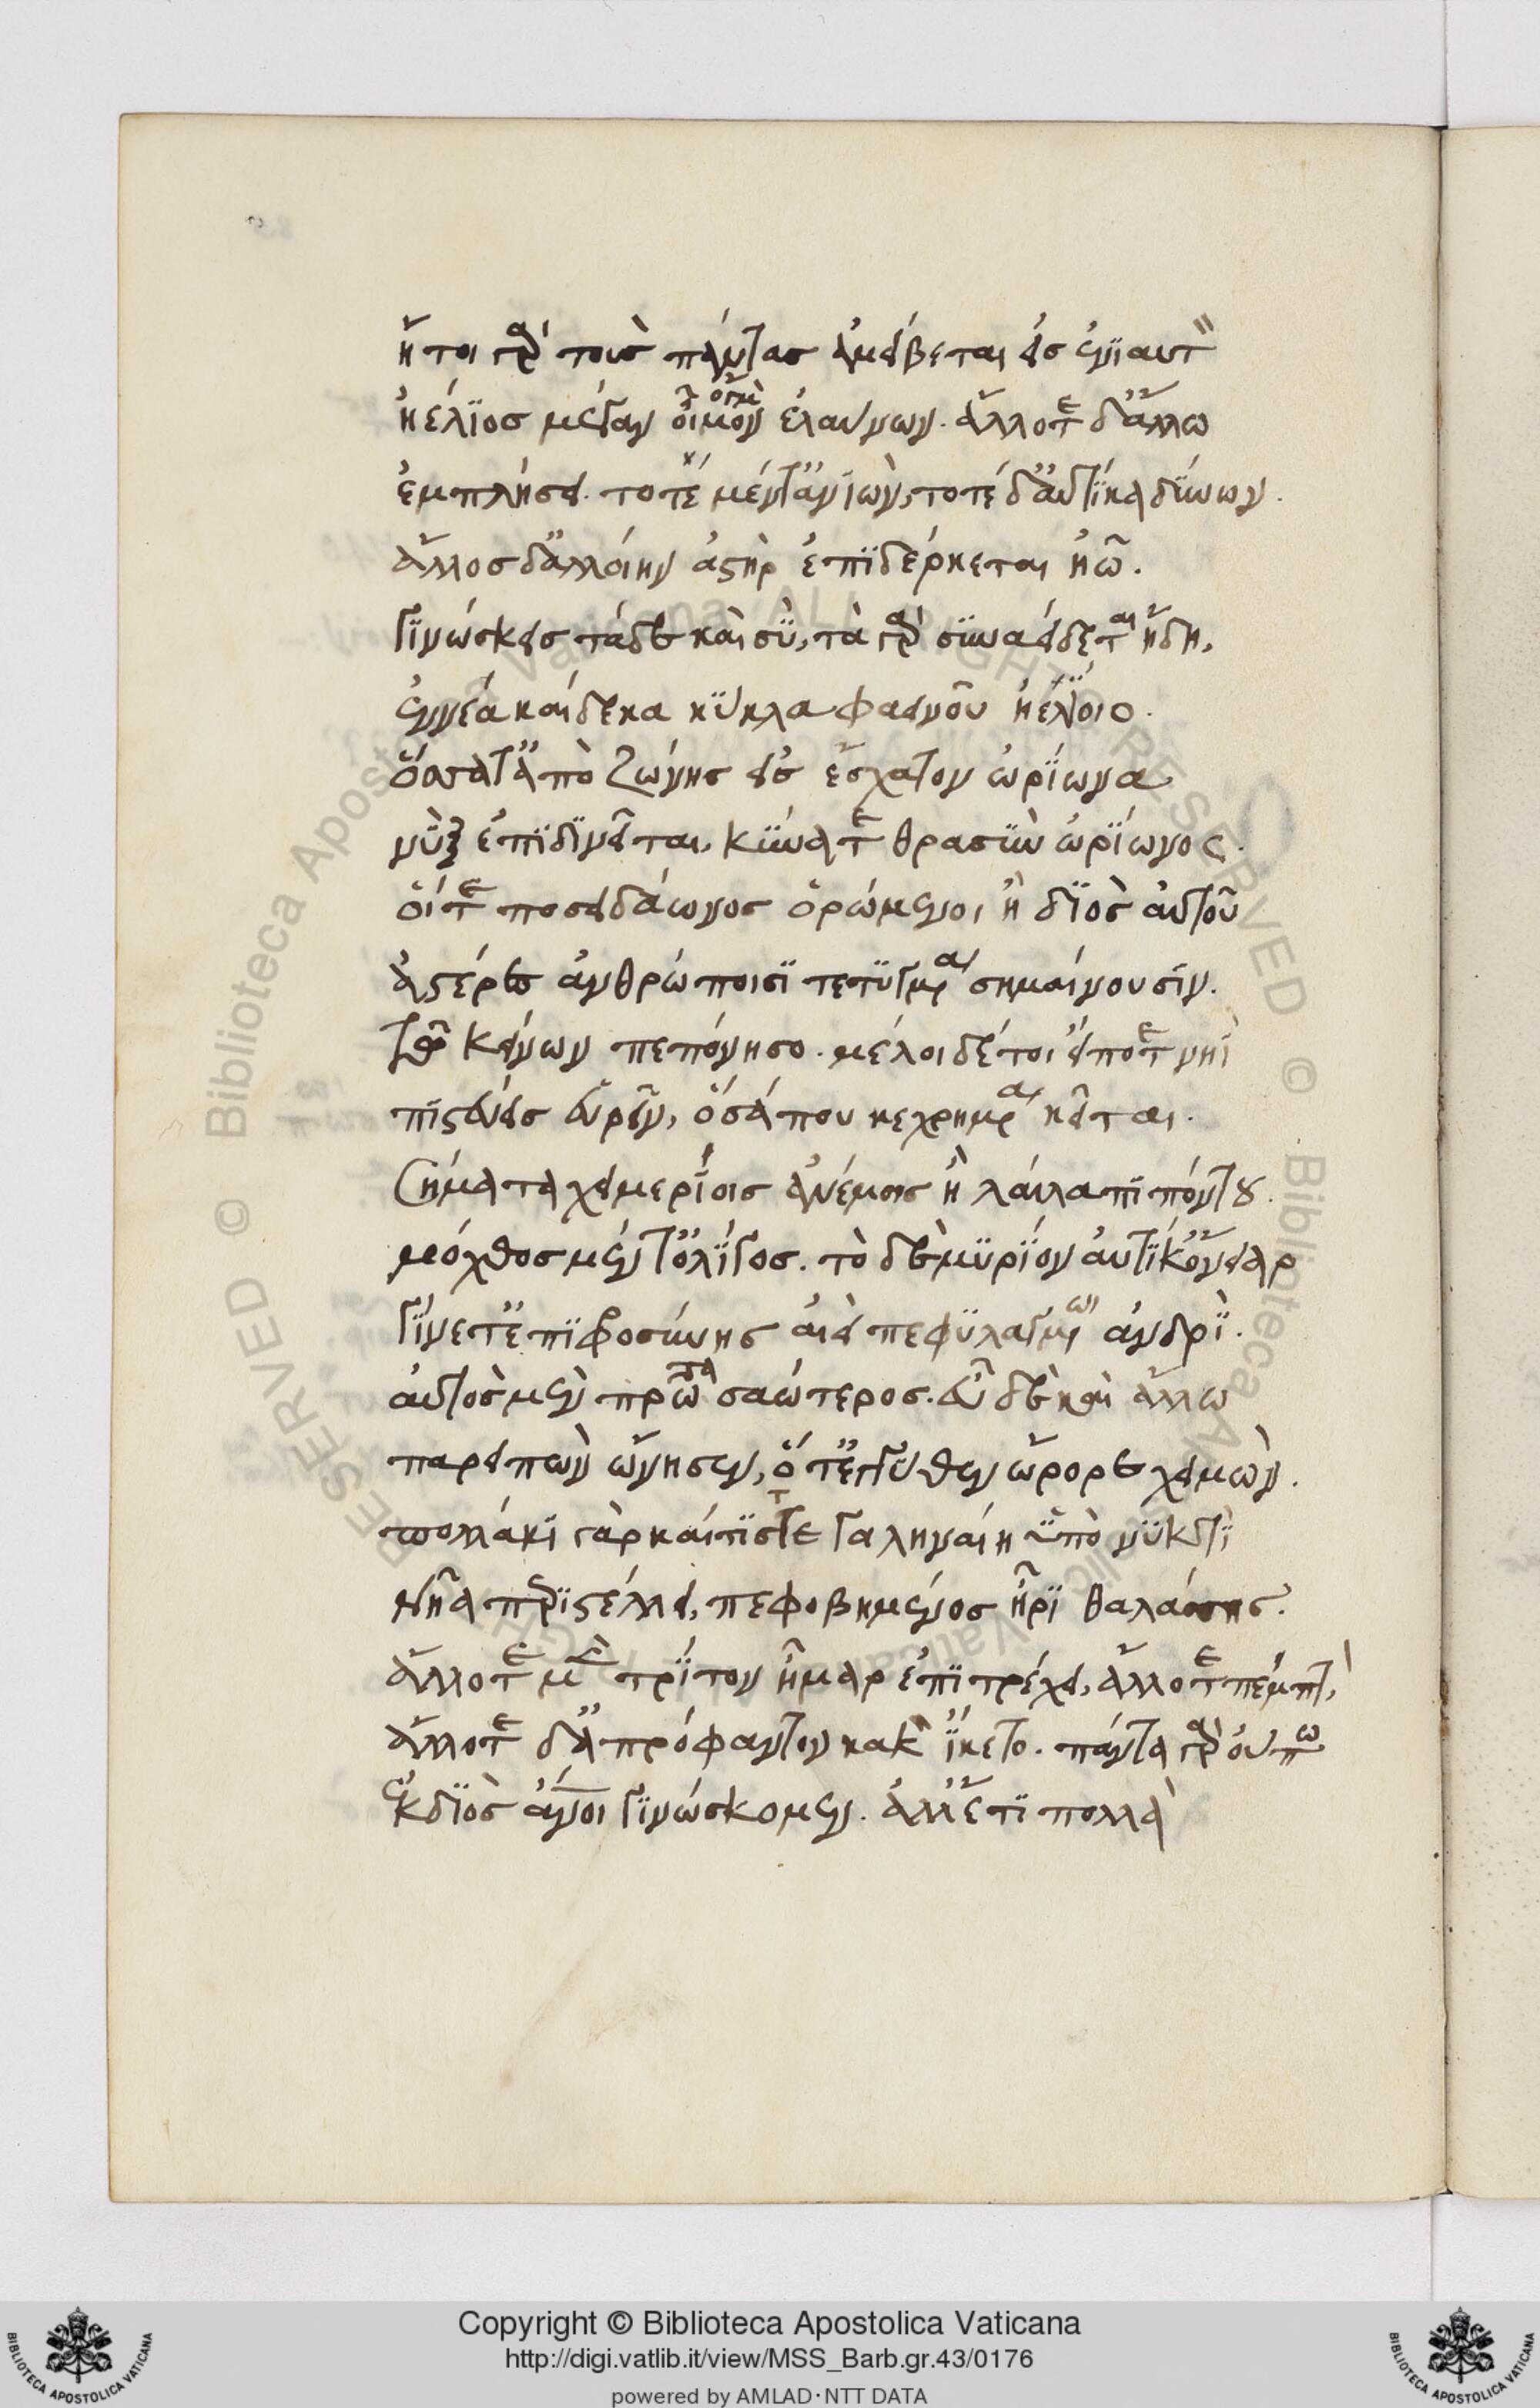 ἤτοι γὰρ τοὺς πάντας ἀμείβεται εἰς ἐνιαυτὸν
ἠέλιος μέγαν οἶμον ἐλαύνων. ἄλλοτε δ' ἄλλω
ὄγμον
ἐμπλήσει. τοτὲ μέν τ' ἀνιὼν, τοτὲ δ' αὐτίκα δύνων.
ἄλλος δ' ἀλλοίην ἀστὴρ ἐπιδέρκεται ἠῶ.
Γινώσκεις τάδε καὶ σὺ, τὰ γὰρ συναείδεται ἤδη,
ἐννέα καὶ δεκα κύκλα φαεινοῦ ἠελίοιο.
ὅσσά τ' ἀπὸ ζώνης εἰς ἔσχατον ὠρίωνα
νὺξ ἐπιδινεῖται, κύνα τε θρασὺν ὠρίωνος.
οἵ τε ποσειδάωνος ὁρώμενοι ἢ διὸς αὐτοῦ
ἀστέρες ἀνθρώποισι τετυγμένα σημαίνουσιν.
Τῷ κείνων πεπόνησο. μέλοι δέ τοι εἴποτε νηὶ
πιστεύεις εὑρεῖν, ὅσά που κεχρημένα κεῖται.
Σήματα χειμερίοις ἀνέμοις ἢ λαίλαπι πόντου.
μόχθος μέν τ' ὀλίγος. τὸ δὲ μυρίον αὐτίκ' ὄνειαρ
Γίνετ' ἐπιφροσύνης αἰεὶ πεφυλαγμένω ἀνδρὶ.
αὐτὸς μὲν πρῶτα σαώτερος. εὖ δὲ καὶ ἄλλω
παρειπὼν ὤνησεν, ὅτ' ἐγγύθεν ὤρορε χειμὼν.
πολλάκι γὰρ καί τίς τε γαληναίη ὑπὸ νυκτὶ
νῆα περιστέλλει, πεφοβημένος ἦρι θαλάσσης.
ἄλλοτε μὲν τρίτον ἦμαρ ἐπιτρέχει, ἄλλοτε πέμπτον,
ἄλλοτε δ' ἀπρόφαντον κακὸν ἵκετο. πάντα γὰρ οὔπω
ἐκ διὸς ἄνθρωποι γινώσκομεν. ἀλλ' ἔτι πολλὰ
Copyright © Biblioteca Apostolica Vaticana
http://digi.vatlib.it/view/MSS_Barb.gr.43/0176
powered by AMLAD·NTT DATA